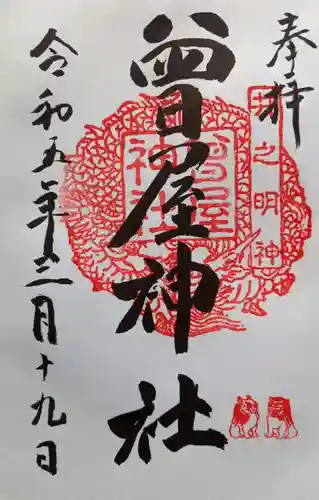 奉拝
曽屋神社
令和五年三月十九日
曽屋
神社
之明神